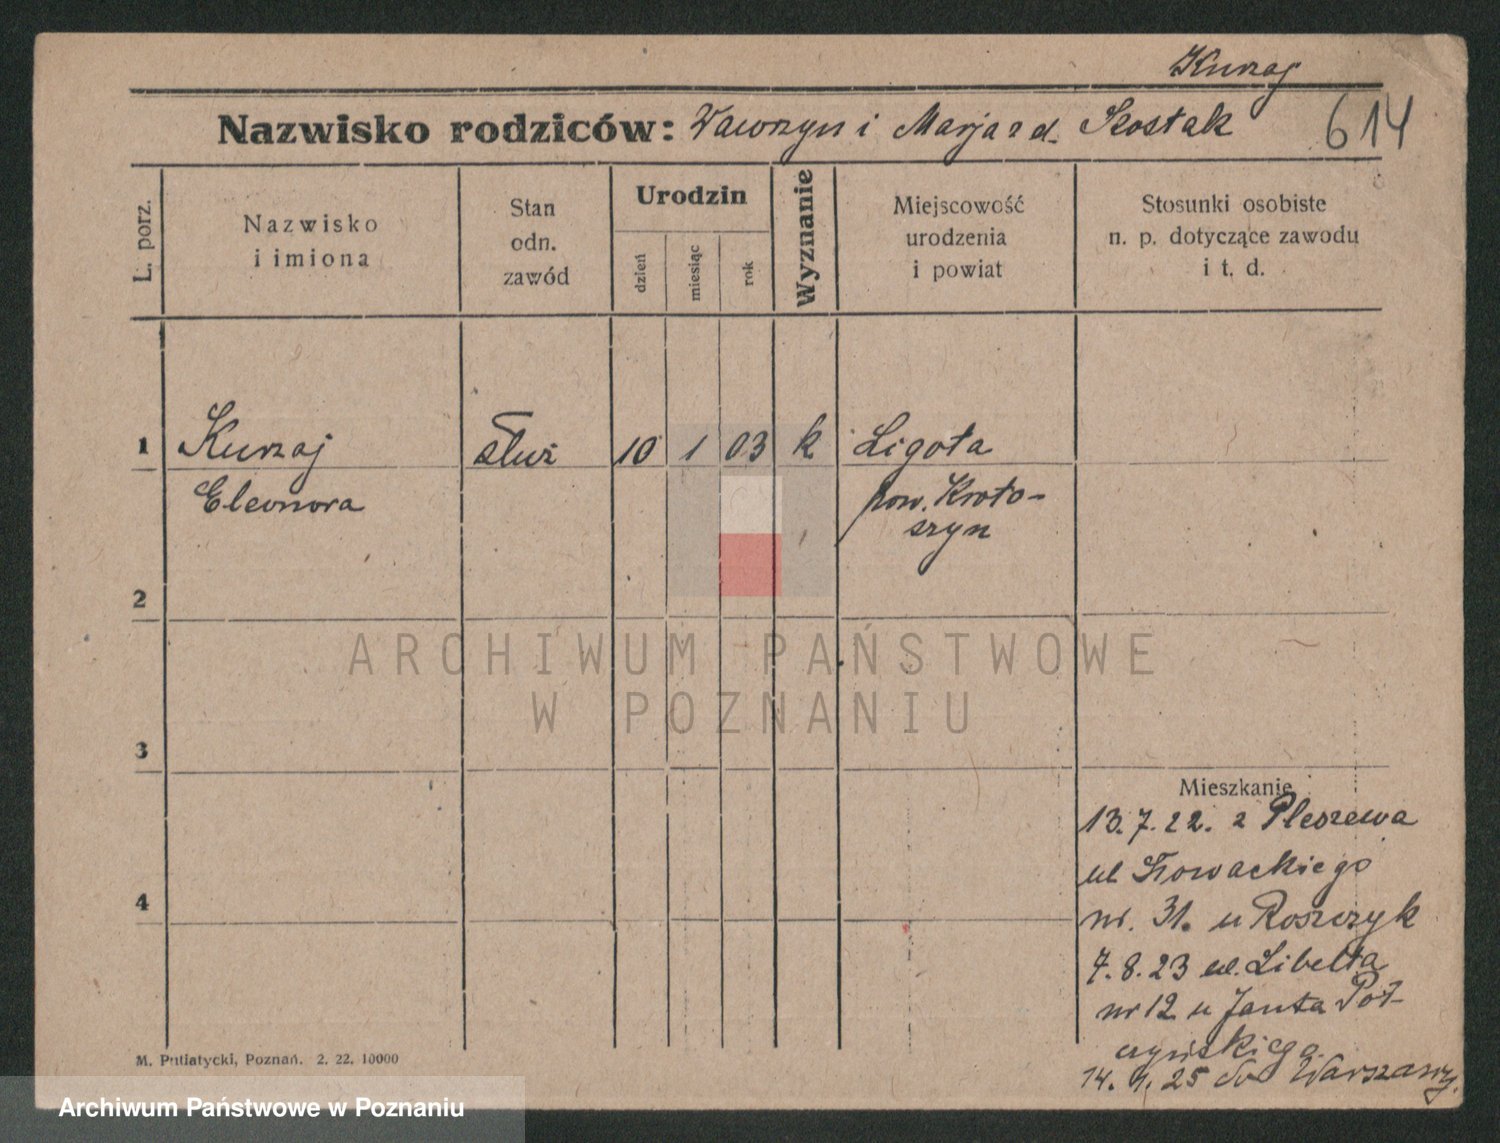 Kurzaj
Nazwisko rodziców: Wawrzyn i Marja z d. Szostak 614
L. porz.
Nazwisko
i imiona
Stan
odn.
zawód
Urodzin
dzień
miesiąc
rok
Wyznanie
Miejscowość
urodzenia
i powiat
Stosunki osobiste
n. p. dotyczące zawodu
i t. d.
1 Kurzaj służ 10 1 03 k Ligota
Eleonora pow. Kroto-
szyn
2
ARCHIWUM PAŃSTWOWE
W POZNANIU
3
Mieszkanie
13.7.22. z Pleszewa
ul Słowackiego
4
nr. 31. u Roszczyk
7.8.23 ul. Libelta
nr 12 u Janta Poł-
czyńskiego
14. 1. 25 do Warszawy.
M. Putiatycki, Poznań. 2. 22. 10000
Archiwum Państwowe w Poznaniu